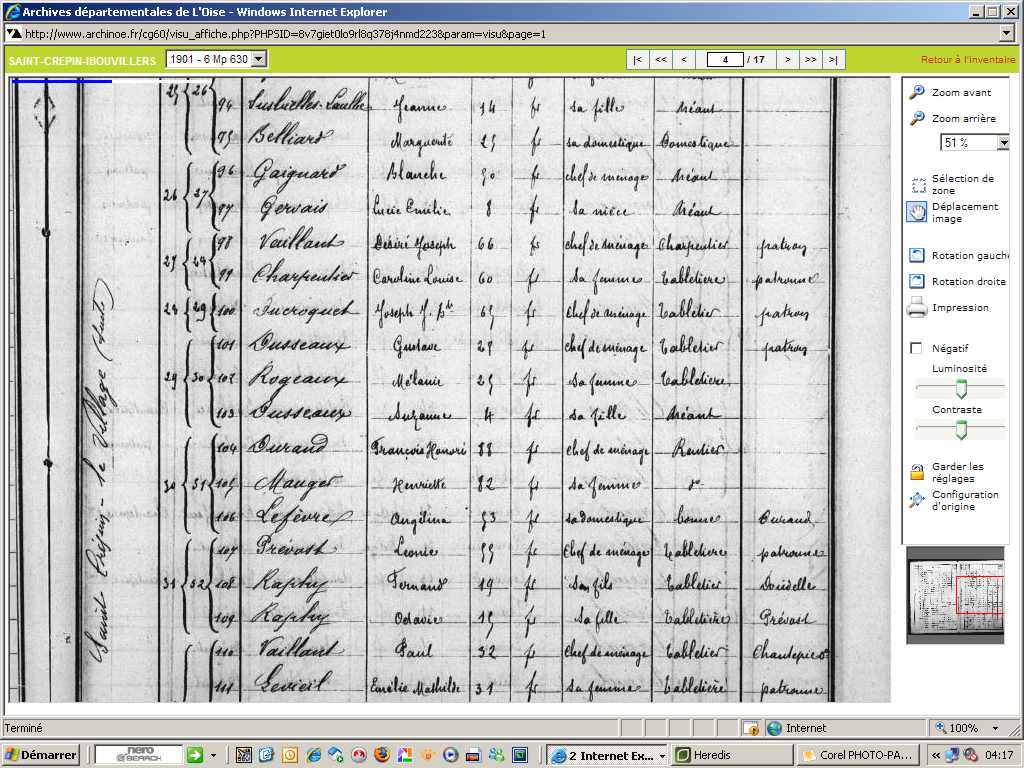 Archives départementales de L'Oise - Windows Internet Explorer
http://www.archinoe.fr/cg60/visu_affiche.php?PHPSID=8v7giet0lo9rl8q378j4nmd223&param=visu&page=1
SAINT-CREPIN-IBOUVILLERS 1901 - 6 Mp 630 |< << < 4 / 17 > >> >| Retour à l'inventaire
Zoom avant
Zoom arrière
51 %
Sélection de
zone
Déplacement
image
Rotation gauch
Rotation droite
Impression
Négatif
Luminosité
Contraste
Garder les
réglages
Configuration
d'origine
Saint Crépin - le Village (suite)
25 26
94 Jeanne 14 fr sa fille Néant
95 Belliard Marguerite 25 fr sa domestique Domestique
96 Gaignard Blanche 30 fr chef de ménage Néant
26 27
97 Gervais Lucie Emilie 8 fr sa nièce Néant
98 Vaillant Désiré Joseph 66 fr chef de ménage Charpentier patron
27 28
99 Charpentier Caroline Louise 60 fr sa femme Tabletière patronne
28 29 100 Ducroquet Joseph J. Bte 65 fr chef de ménage Tabletier patron
101 Dusseaux Gustave 29 fr chef de ménage Tabletier patron
29 30 102 Rogeaux Mélanie 25 fr sa femme Tabletière
103 Dusseaux Suzanne 4 fr sa fille Néant
104 Durand François Honoré 88 fr chef de ménage Rentier
30 31 105 Mauger Henriette 82 fr sa femme do
106 Lefèvre Angélina 53 fr sa domestique bonne Durand
107 Prévost Léonie 55 fr chef de ménage Tabletière patronne
31 32 108 Raphy Fernand 19 fr son fils Tabletier Doudelle
109 Raphy Octavie 15 fr sa fille Tabletière Prévost
110 Vaillant Paul 32 fr chef de ménage Tabletier
111 Levieil Emélie Mathilde 31 fr sa femme Tabletière patronne
Terminé Internet 100%
Démarrer nero SEARCH 2 Internet Ex... Heredis Corel PHOTO-PA... 04:17